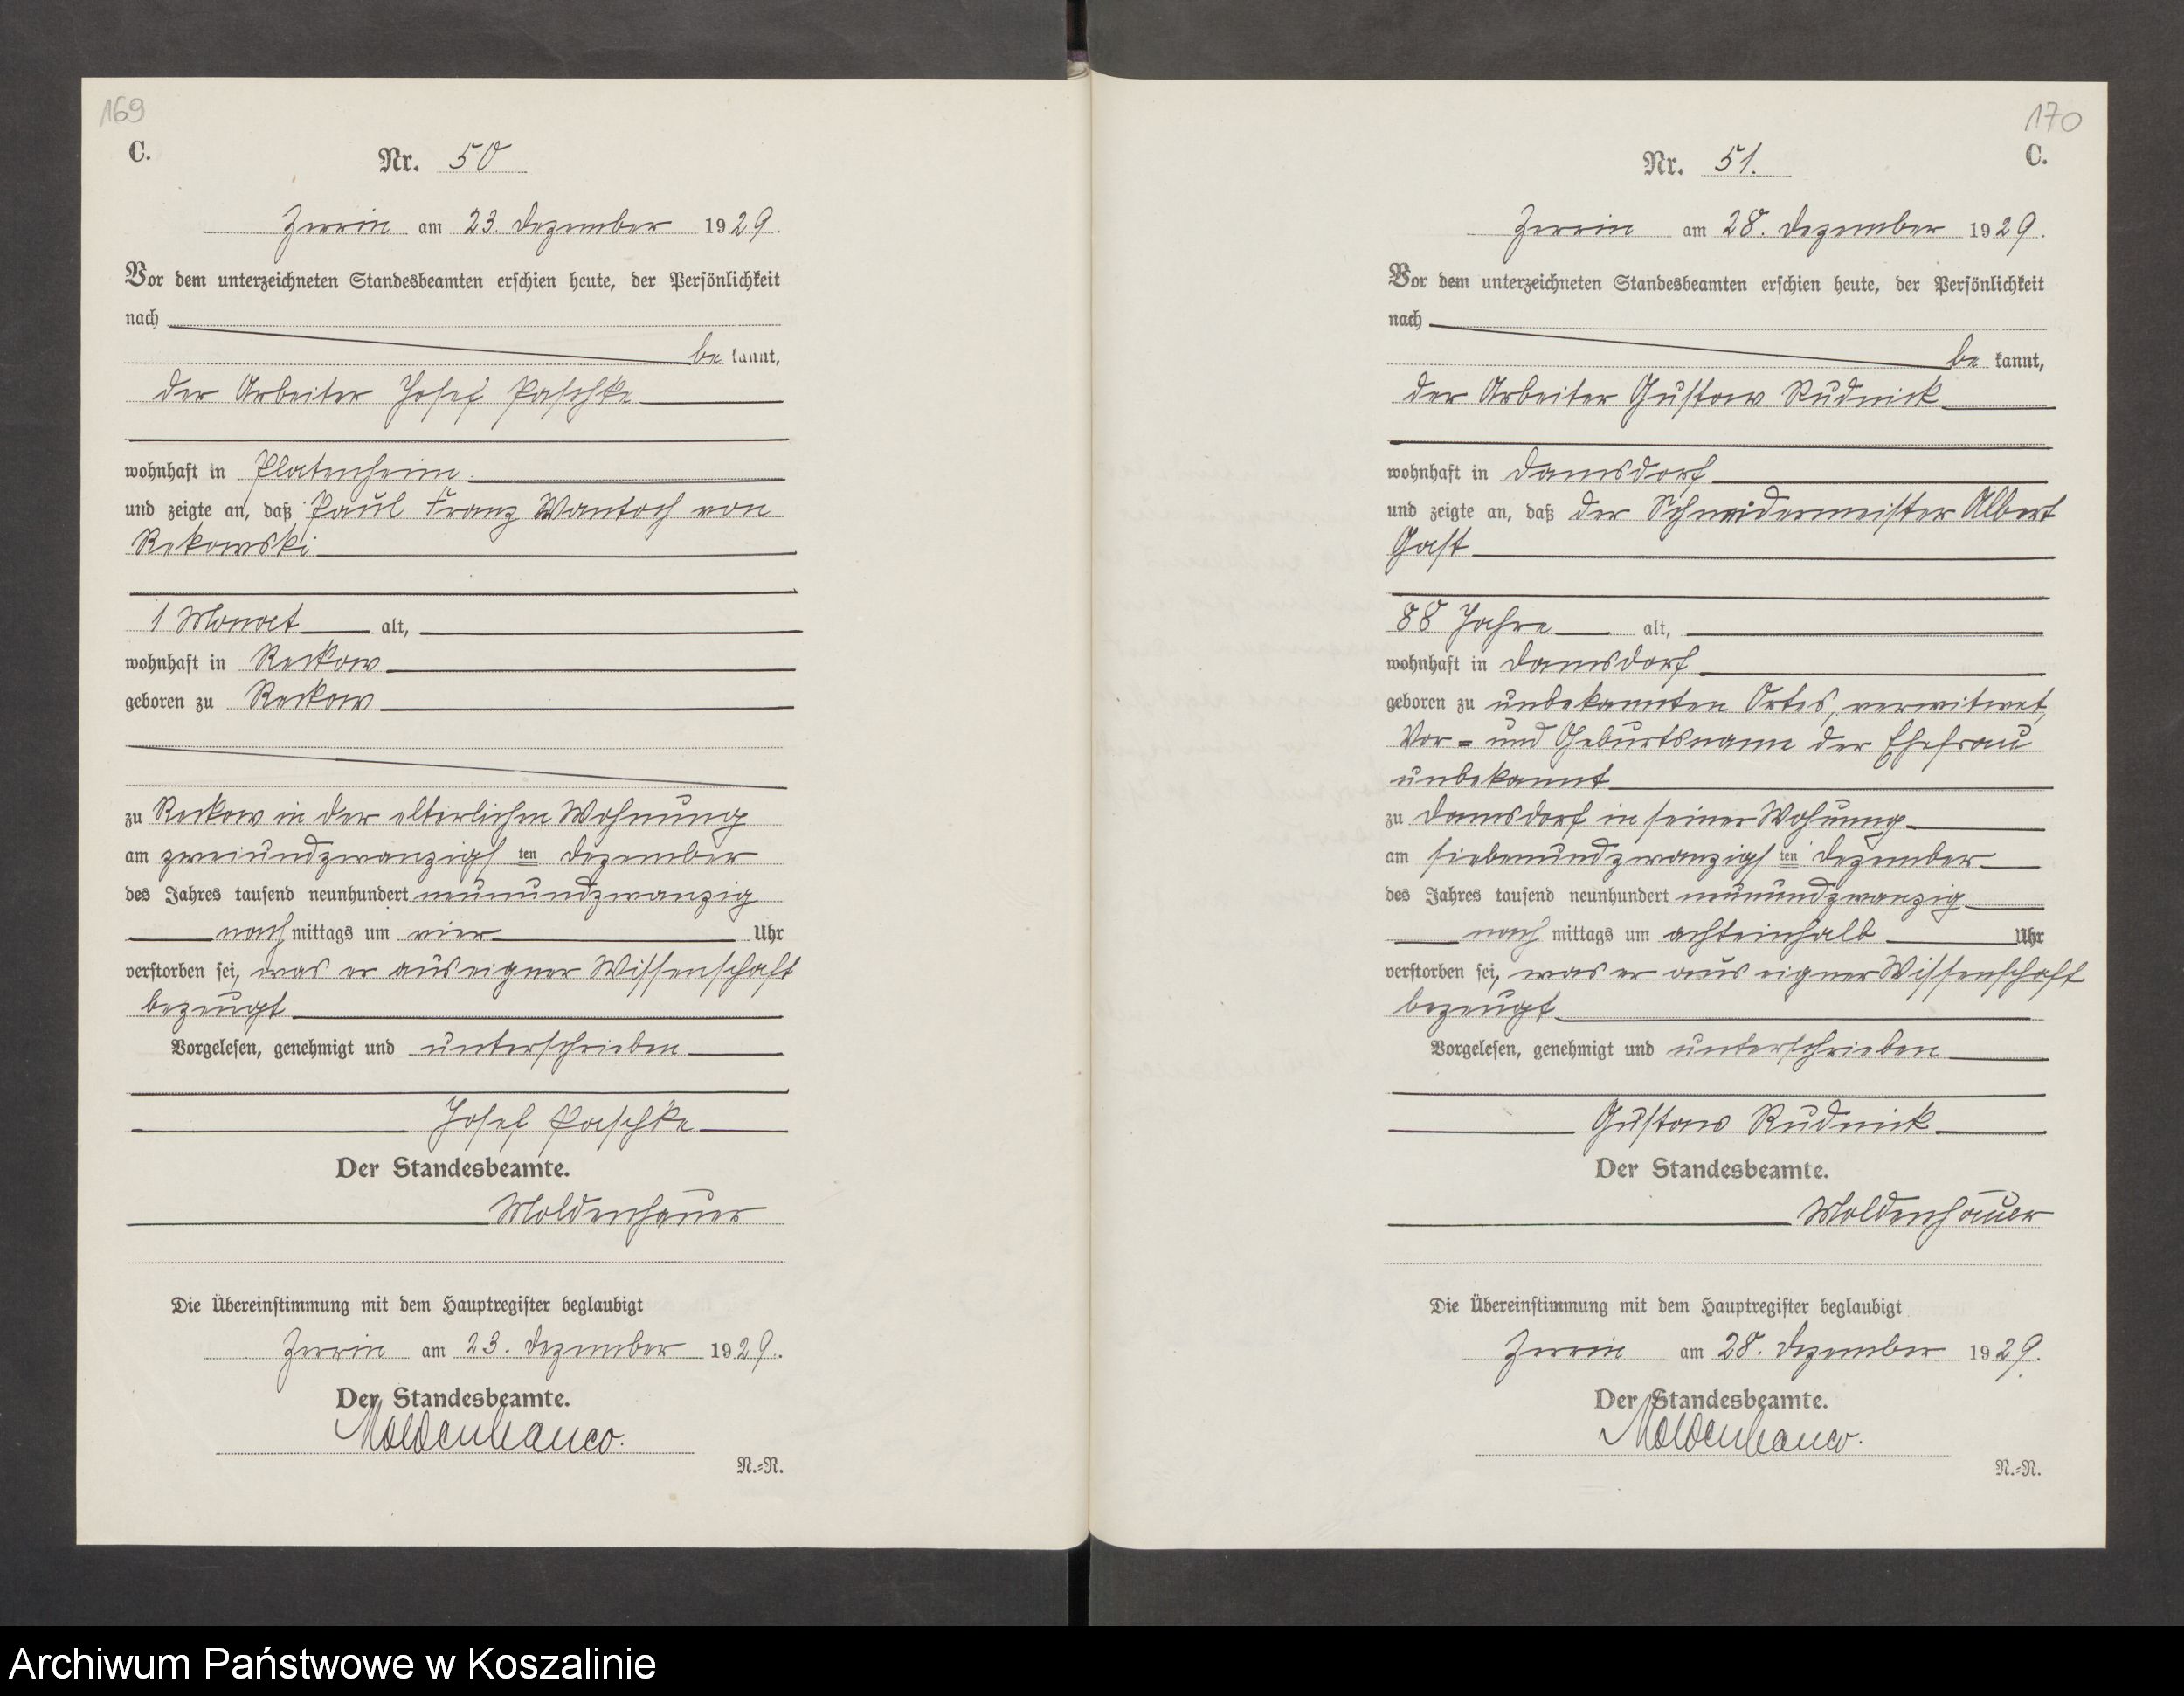 169
C.
Nr. 50
Zerrin am 23. Dezember 1929.
Vor dem unterzeichneten Standesbeamten erschien heute, der Persönlichkeit
nach
be kannt,
der Arbeiter Josef Paschke
wohnhaft in Platenheim
und zeigte an, daß Paul Franz Wantoch von
Rekowski
1 Monat alt,
wohnhaft in Reckow
geboren zu Reckow
zu Reckow in der elterlichen Wohnung
am zweiundzwanzigs ten Dezember
des Jahres tausend neunhundert neunundzwanzig
nach mittags um vier Uhr
verstorben sei, was er aus eigner Wissenschaft
bezeugt
Vorgelesen, genehmigt und unterschrieben
Josef Paschke
Der Standesbeamte.
Moldenhauer
Die Übereinstimmung mit dem Hauptregister beglaubigt
Zerrin am 23. Dezember 1929.
Der Standesbeamte.
Moldenhauer.
N.=N.
170
C.
Nr. 51.
Zerrin am 28. Dezember 1929.
Vor dem unterzeichneten Standesbeamten erschien heute, der Persönlichkeit
nach
be kannt,
der Arbeiter Gustav Rudnick
wohnhaft in Damsdorf
und zeigte an, daß der Schneidermeister Albert
Gast
88 Jahre alt,
wohnhaft in Damsdorf
geboren zu unbekannten Ortes, verwitwet,
Vor= und Geburtsname der Ehefrau
unbekannt
zu Damsdorf in seiner Wohnung
am siebenundzwanzigs ten Dezember
des Jahres tausend neunhundert neunundzwanzig
nach mittags um achteinhalb Uhr
verstorben sei, was er aus eigner Wissenschaft
bezeugt
Vorgelesen, genehmigt und unterschrieben
Gustav Rudnick
Der Standesbeamte.
Moldenhauer
Die Übereinstimmung mit dem Hauptregister beglaubigt
Zerrin am 28. Dezember 1929.
Der Standesbeamte.
Moldenhauer.
N.=N.
Archiwum Państwowe w Koszalinie